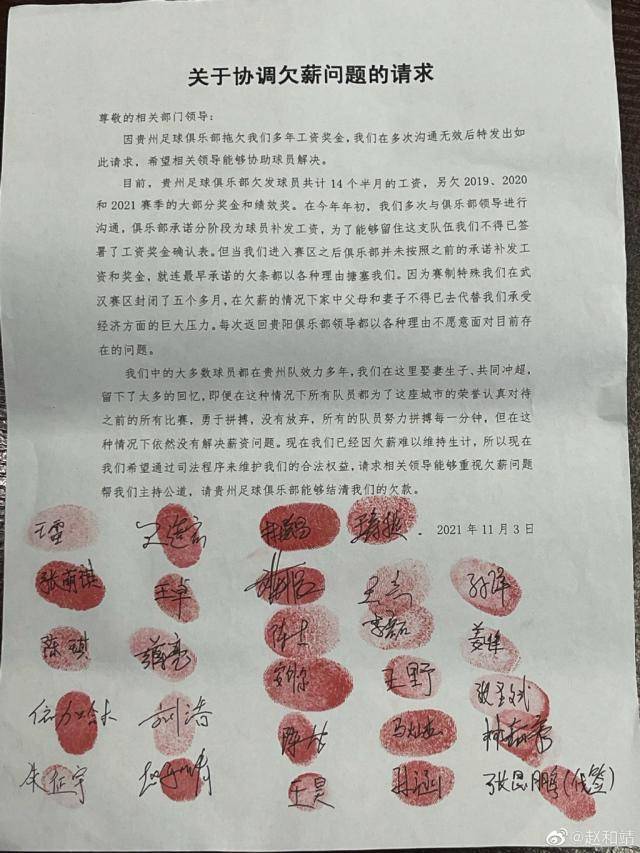 关于协调欠薪问题的请求
尊敬的相关部门领导：
因贵州足球俱乐部拖欠我们多年工资奖金，我们在多次沟通无效后特发出如
此请求，希望相关领导能够协助球员解决。
目前，贵州足球俱乐部欠发球员共计 14 个半月的工资，另欠 2019、2020
和 2021 赛季的大部分奖金和绩效奖。在今年年初，我们多次与俱乐部领导进行
沟通，俱乐部承诺分阶段为球员补发工资，为了能够留住这支队伍我们不得已签
署了工资奖金确认表。但当我们进入赛区之后俱乐部并未按照之前的承诺补发工
资和奖金，就连最早承诺的欠条都以各种理由搪塞我们。因为赛制特殊我们在武
汉赛区封闭了五个多月，在欠薪的情况下家中父母和妻子不得已去代替我们承受
经济方面的巨大压力。每次返回贵阳俱乐部领导都以各种理由不愿意面对目前存
在的问题。
我们中的大多数球员都在贵州队效力多年，我们在这里娶妻生子、共同冲超，
留下了太多的回忆，即便在这种情况下所有队员都为了这座城市的荣誉认真对待
之前的所有比赛，勇于拼搏，没有放弃，所有的队员努力拼搏每一分钟，但在这
种情况下依然没有解决薪资问题。现在我们已经因欠薪难以维持生计，所以现在
我们希望通过司法程序来维护我们的合法权益，请求相关领导能够重视欠薪问题
帮我们主持公道，请贵州足球俱乐部能够结清我们的欠款。
2021 年 11 月 3 日
张萌琪 王卓
陈琪
王野
刘涛
朱征宇 王昊 张昆鹏（代签）
@赵和靖